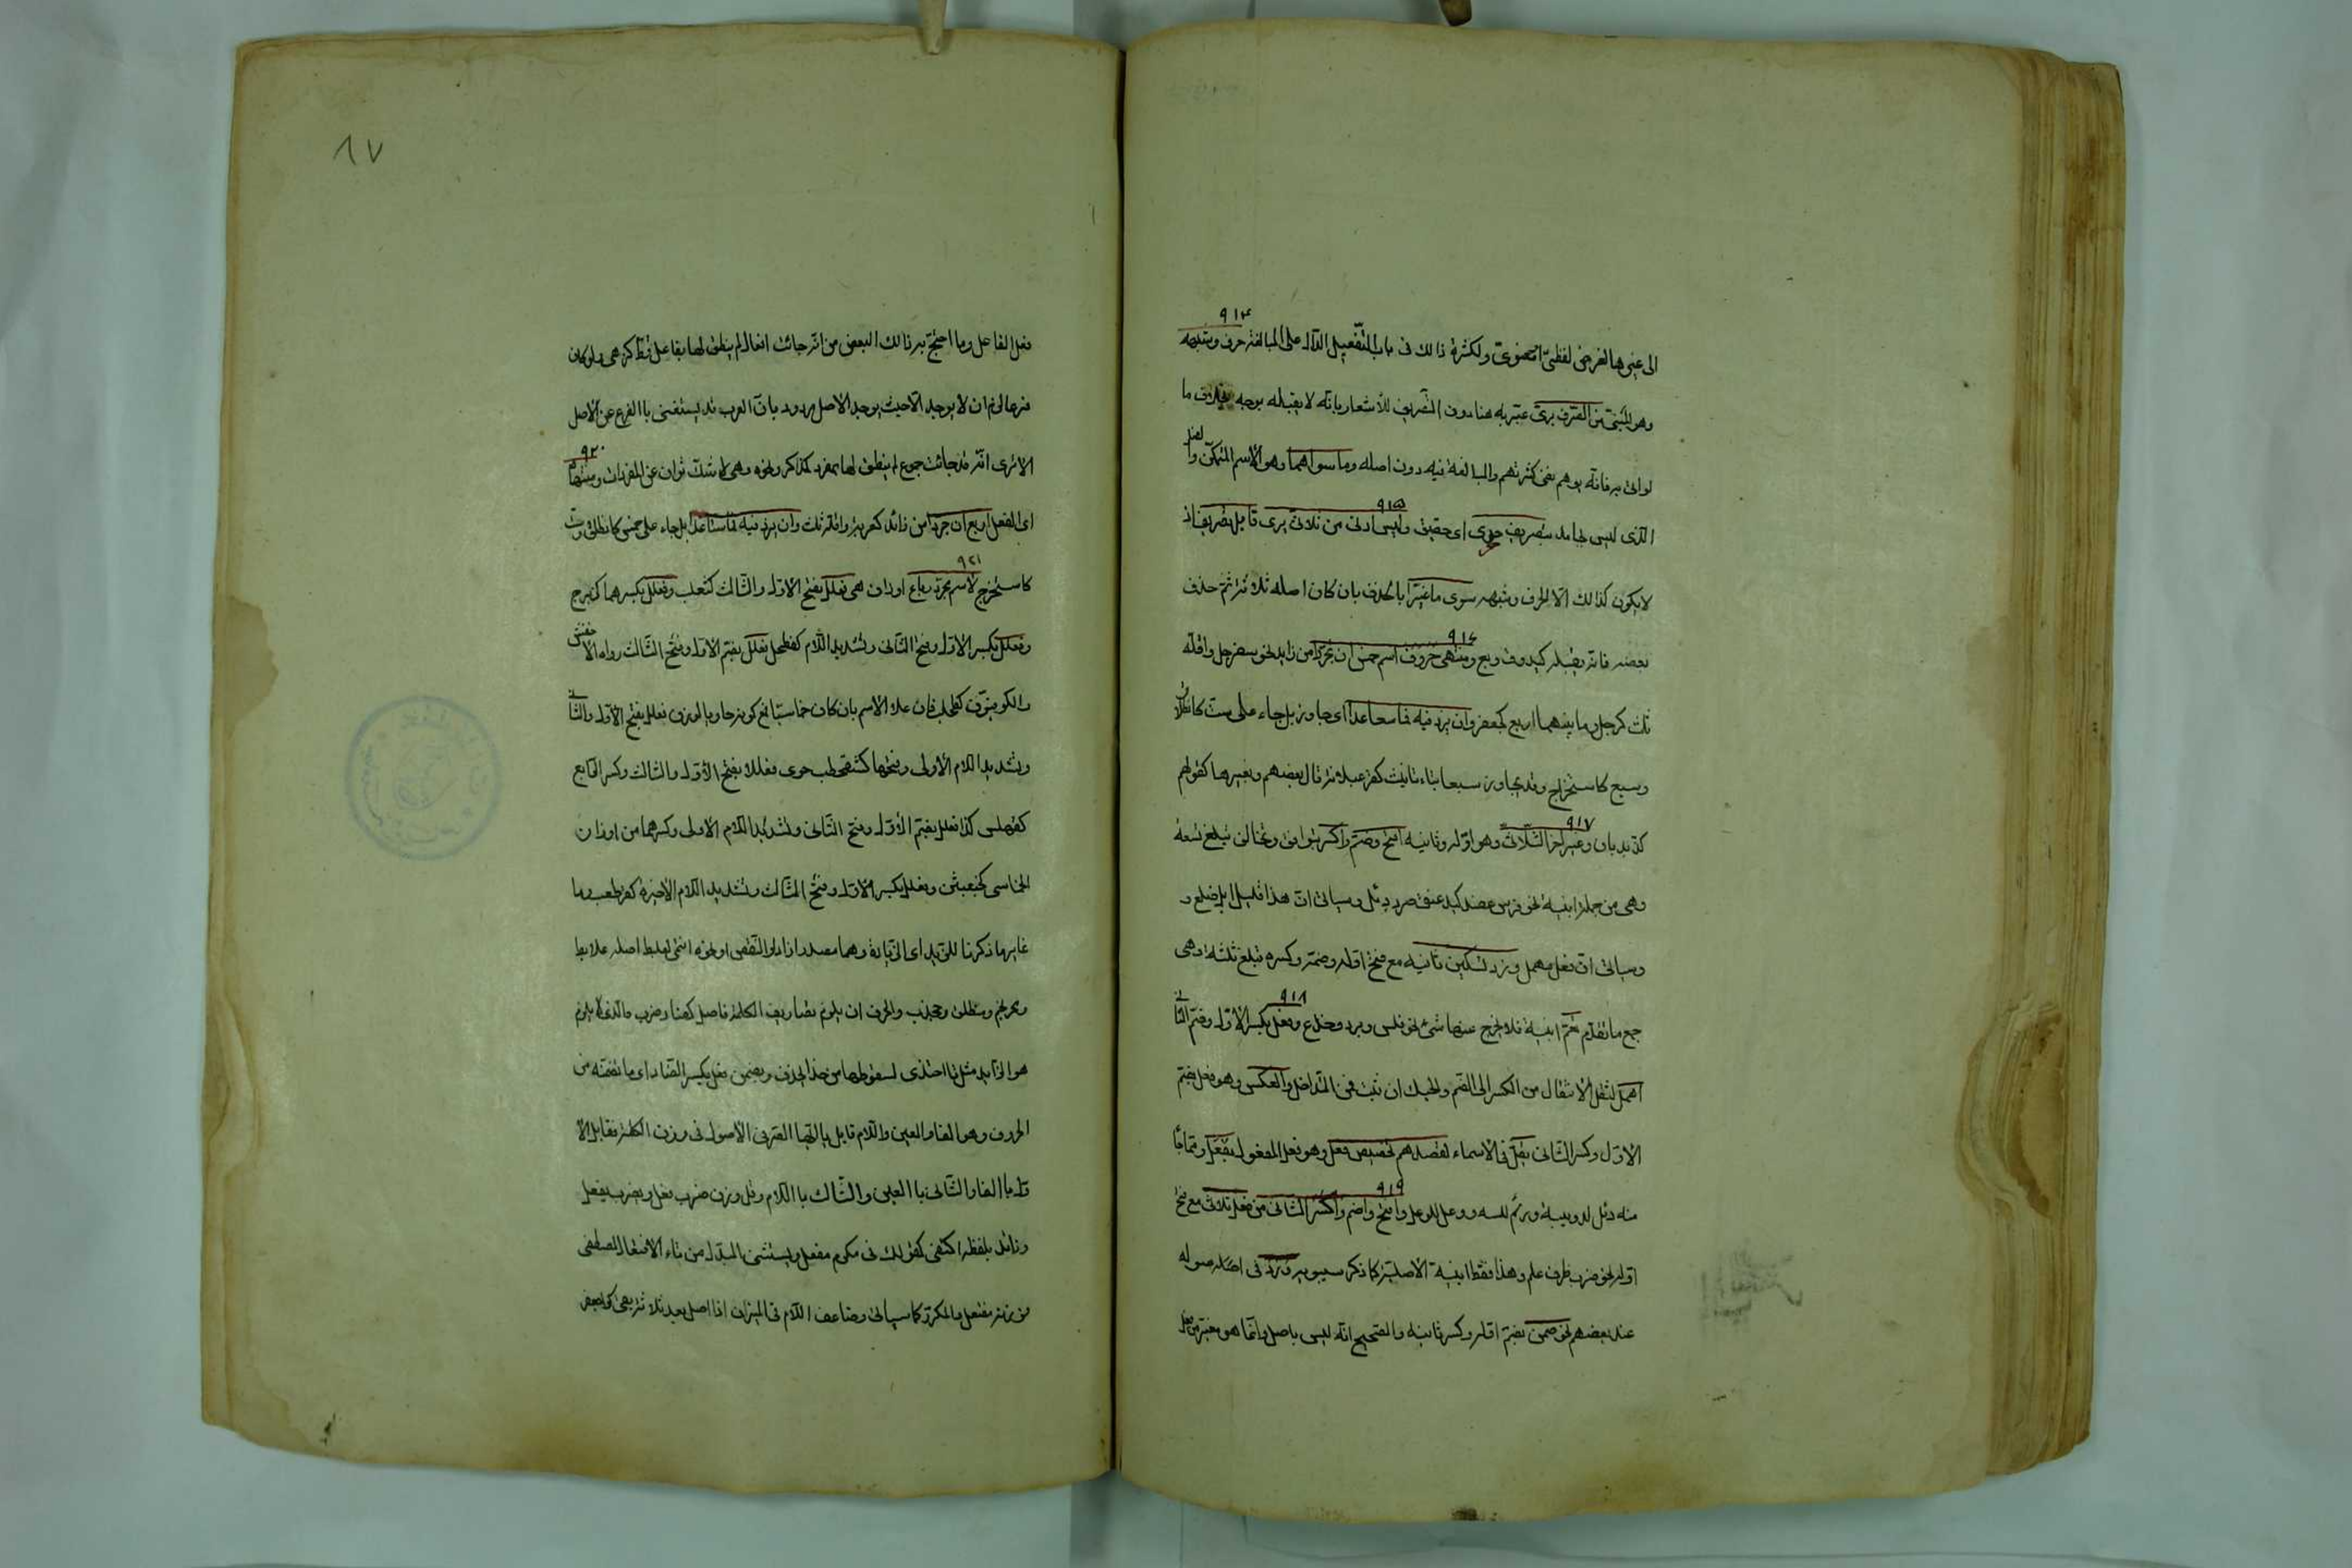 ٩١٤
الى غيرها لغرض لفظىّ او معنوىّ ولكثرة ذالك فى باب التّفعيل الدّالّ على المبالغة حرف وشبهه
وهو المبنىّ من الصّرف برىّ عبّر به هنا دون التّصريف للأشعار بانّه لا يقبله بوجه بخلاف ما
لو اتى به فانّه يوهم نفى كثرتهم والمبالغة فيه دون اصله وما سواهما وهو الأسم المتمكّن والفعل
٩١٥
الّذى ليس بجامد بتصريف حرى اى حقيق وليس ادنى من ثلاثىّ يرى قابل تصريف اذ
لا يكون كذالك الّا الحرف وشبهه سوى ما غيّرا بالحذف بان كان اصله ثلاثة ثمّ حذف
٩١٦
بعضه فانّه يقبله كيد وق وبع ومنتهى حروف اسم خمس ان تجرّدا من زايد نحو سفرجل واقلّه
ثلث كرجل وما بينهما اربع كجعفر وان يزد فيه فما سبعا عدا اى جاوز بل جاء على ستّ كانطلاق
وسبع كاستخراج وقد يجاوز سبعا بتاء تانيث كقرعبلانة قال بعضهم وبغيرها كقولهم
٩١٧
كذبذبان وغير اخر الثّلاثى وهو اوّله وثانيه افتح وضمّ واكسر بتوافق وتخالف تبلغ تسعة
وهى من جملة ابنية نحو فرس عضد كبد عنق صرد دئل وسياتى انّ هذا قليل ابل ضلع و
وسياتى انّ فعل مهمل وزد تسكين ثانيه مع فتح اوّله وضمّه وكسره تبلغ ثلثة وهى
٩١٨
جمع ما تقدّم تعمّ ابنية فلا يخرج عنها شئ نحو فلس وبرد وجذع وفعل بكسر الأوّل وضمّ الثّانى
اهمل لثقل الأنتقال من الكسر الى الضّم والحبك ان ثبت فمن التّداخل والعكس وهو فعل بضمّ
الأوّل وكسر الثّانى يقلّ فى الأسماء لقصدهم تخصيص فعل وهو فعل المفعول بفعل وممّا جاء
٩١٩
منه دئل لدويبة ورئم للسه ووعل للوعل وافتح واضم واكسر الثّانى من فعل ثلاثى مع فتح
اوّله نحو ضرب ظرف علم وهذا فقط ابنية الأصلية كما ذكر سيبويه وزد فى اصله
عند بعضهم نحو ضمن بضمّ اوّله وكسر ثانيه والصّحيح انّه ليس باصل وانّما هو مغيّر من فعل
٨٧
فعل الفاعل وما احتجّ به ذالك البعض من انّه جائت افعال لم ينطق لها بفاعل قطّ كزهى ولو كان
فرعا لزم ان لا يوجد الّا حيث يوجد الاصل مردود بانّ العرب قد يستغنى باالفرع عن الأصل
٩٢٠
الا ترى انّه قد جائت جموع لم ينطق لها بمفرد كمذاكر ونحوه وهى لا شكّ ثوان عن المفردات ومنتهاه
اى الفعل اربع ان جرّدا من زائد كعربد واقلّه ثلث وان يزد فيه فما ستّا عدا بل جاء على خمس كانطلق وستّ
٩٢١
كاستخرج لأسم مجرّد رباع اوزان هى فعلل بفتح الاوّل والثّالث كثعلب وفعلل بكسرهما كزبرج
وفعلل بكسر الأوّل وفتح الثّانى وتشديد اللّام كفطحل فعلل بضمّ الأوّل وفتح الثّالث رواه الأخفش
والكوفيّون كطحلب فان علا الأسم بان كان خماسيّا فمع كونه حاويا لوزن فعلل بفتح الأوّل والثّانى
وتشديد اللام الأولى وفتحها كشقحطب حوى فعللا بفتح الأوّل والثالث وكسر الرّابع
كقهبلس كذا فعلل بضمّ الأوّل وفتح الثّانى وتشديد اللام الأولى وكسرها من اوزان
الخماسى كخبعثن وفعلل بكسر الأوّل وفتح الثّالث وتشديد اللام الأخيرة كقرطعب وما
غاير ما ذكرنا للزّيد اى الزّيادة وهما مصدرا زاد او النّقص او نحوه انتمى كعلبط اصله علابط
ومحرنجم ومنطلق وجخدب والحرف ان يلزم تصاريف الكلمة فاصل كضاد ضرب والّذى لا يلزم
هو الزّايد مثل تا احتذى لسقوطها من حذا يحذو وبضمن فعل بكسر الضّاد اى ما تضمّنه من
الحروف وهو الفاء والعين واللام قابل يا ايّها الصّرفىّ الأصول فى وزن الكلمة فقابل الأ
وّل باالفاء والثّانى باالعين والثّالث باللام وقل وزن ضرب فعل ويضرب يفعل
وزائد بلفظه اكتفى كقولك فى مكرم مفعل ويستثنى المبدل من تاء الأفتعال كمصطفى
فوزنه مفتعل والمكرّر كما سياتى وضاعف اللام فى الميزان اذا اصل بعد ثلاثة بقى كجعفر